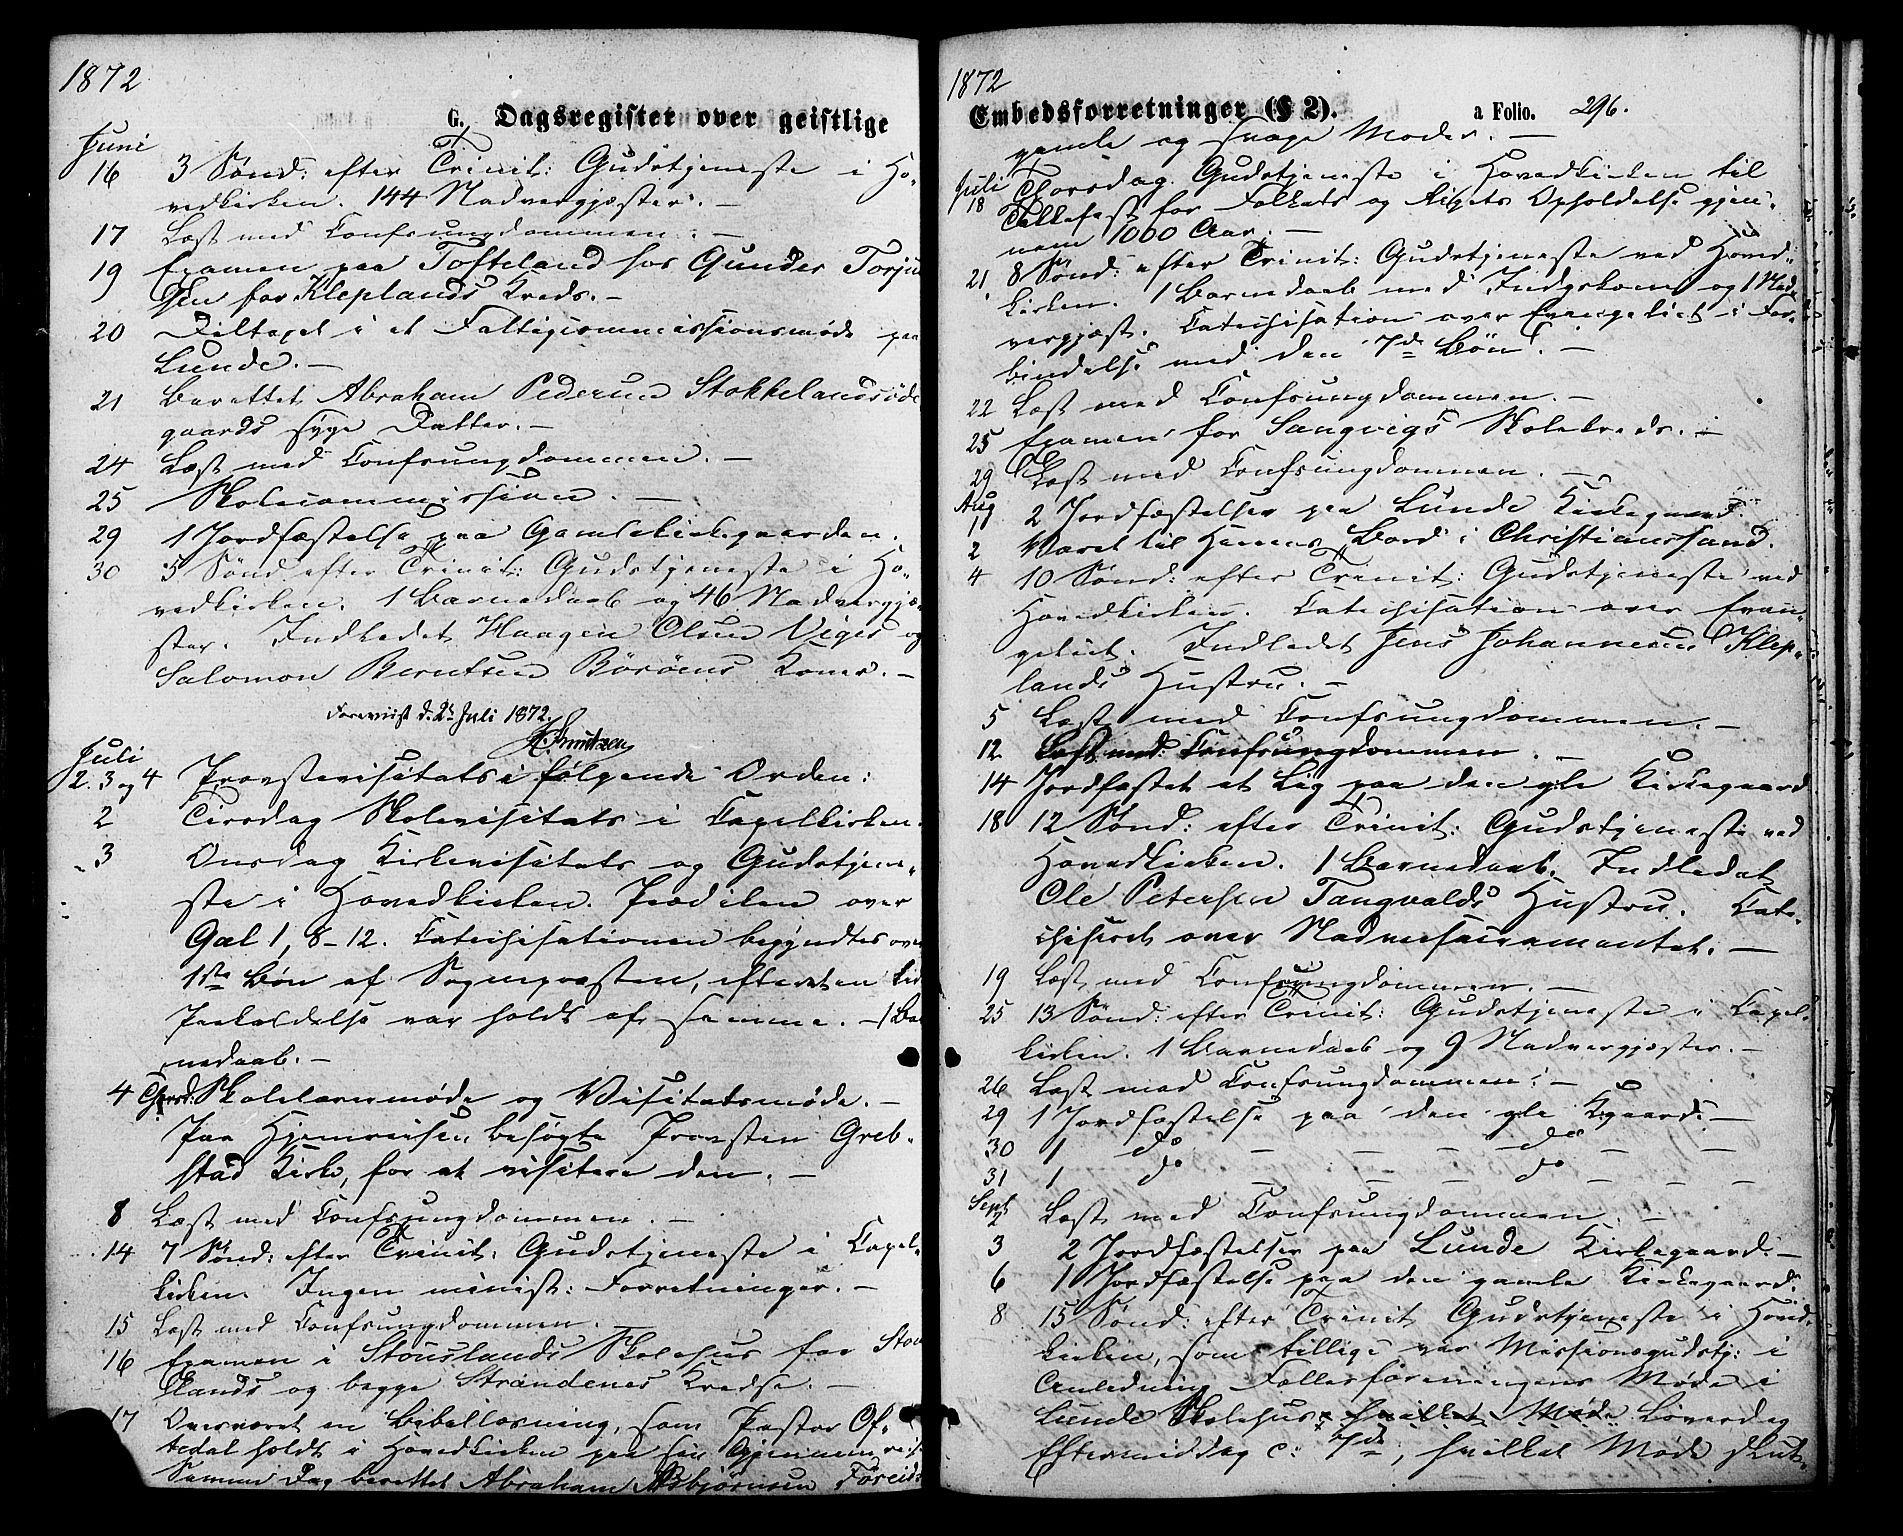 1872
G. Dagsregister over geistlige
Juni
16 3 Sønd: efter Trinit: Gudstjeneste i Ho-
vedkirken. 144 Nadvergjæster. —
17 Læst med Confungdommen. —
19 Examen paa Tofteland hos Gunder Torju
sen for Kleplands Kreds. —
20 Deltaget i et Fattigcommissionsmøde paa
Lunde. —
21 Berettet Abraham Pedersen Stokkelandsøde
gaards syge Datter. —
24 Læst med Confungdommen. —
25 Skolecommission. —
29 1 Jordfæstelse paa Gamlekirkegaarden.
30 5 Sønd: efter Trinit: Gudstjeneste i Ho-
vedkirken. 1 Barnedaab og 46 Nadvergjæ-
ster. Indledet Haagen Olsen Viges og
Salomon Berntsen Börøens Koner. —
Foreviist d. 2 Juli 1872.
Juli
2. 3 og 4 Provstevisitats i følgende Orden:
2 Tirsdag Skolevisitats i Capelkirken.
3 Onsdag Kirkevisitats og Gudstjene-
ste i Hovedkirken. Prædiken over
Gal 1, 8-12. Catechisationen begyndtes over
1ste Bøn af Sognepræsten, efterat en
Paakaldelse var holdt af samme. — 1 Bar
nedaab. —
4 Thorsd: Skolelærermøde og Visitatsmøde. —
Paa Hjemreisen besøgte Provsten Greb-
stad Kirke, for at visitere den. —
8 Læst med Confungdommen. —
14 7 Sønd: efter Trinit: Gudstjeneste i Capel-
kirken. Ingen minist: Forretninger. —
15 Læst med Confungdommen. —
16 Examen i Stouslands Skolehus for Stous
lands og begge Strandenes Kredse. —
17 Overværet en Bibellæsning, som Pastor Of-
tedal holdt i Hovedkirken paa sin Gjennemreise.
Samme Dag berettet Abraham Asbjørnsen Føreids
1872
Embedsforretninger (§ 2). a Folio. 296.
gamle og svage Moder. —
Juli
18 Thorsdag. Gudstjeneste i Hovedkirken til
Takkefest for Folkets og Rigets Opholdelse gjen-
nem 1000 Aar. —
21 8 Sønd: efter Trinit: Gudstjeneste ved Hoved-
kirken. 1 Barnedaab med Indgskone og 1 Nad-
vergjæst. Catechisation over Evangeliet i For-
bindelse med den 7de Bøn. —
22 Læst med Confungdommen. —
25 Examen for Sangvigs Skolekreds. —
29 Læst med Confungdommen. —
Aug
1 2 Jordfæstelser paa Lunde Kirkegaard.
2 Været til Herrens Bord i Christianssand.
4 10 Sønd: efter Trinit: Gudstjeneste ved
Hovedkirken. Catechisation over Evan-
geliet. Indledet Jens Johannesen Klep-
lands Hustru. —
5 Læst med Confungdommen. —
12 Læst med Confungdommen. —
14 Jordfæstet et Lig paa den gle Kirkegaard
18 12 Sønd: efter Trinit: Gudstjeneste ved
Hovedkirken. 1 Barnedaab. Indledet
Ole Petersen Tangvalds Hustru. Cate-
chiseret over Nadversacramentet. —
19 Læst med Confungdommen. —
25 13 Sønd: efter Trinit: Gudstjeneste i Capel-
kirken. 1 Barnedaab og 9 Nadvergjæster. —
26 Læst med Confungdommen. —
29 1 Jordfæstelse paa den gle Kgaard. —
30 1 do — — — — do — —
31 1 do — — — — do — — —
Sept
2 Læst med Confungdommen. —
3 2 Jordfæstelser paa Lunde Kirkegaard. —
6 1 Jordfæstelse paa den gamle Kirkegaard.
8 15 Sønd: efter Trinit Gudstjeneste i Hoved-
kirken, som tillige var Missionsgudstj: i
Anledning Fællesforeningens Møde i
Lunde Skolehus, hvilket Møde Løverdag
Eftermiddag c: 7de, hvilket Møde slut-